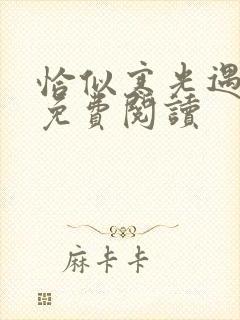 恰似寒光遇
免費閱讀
麻卡卡